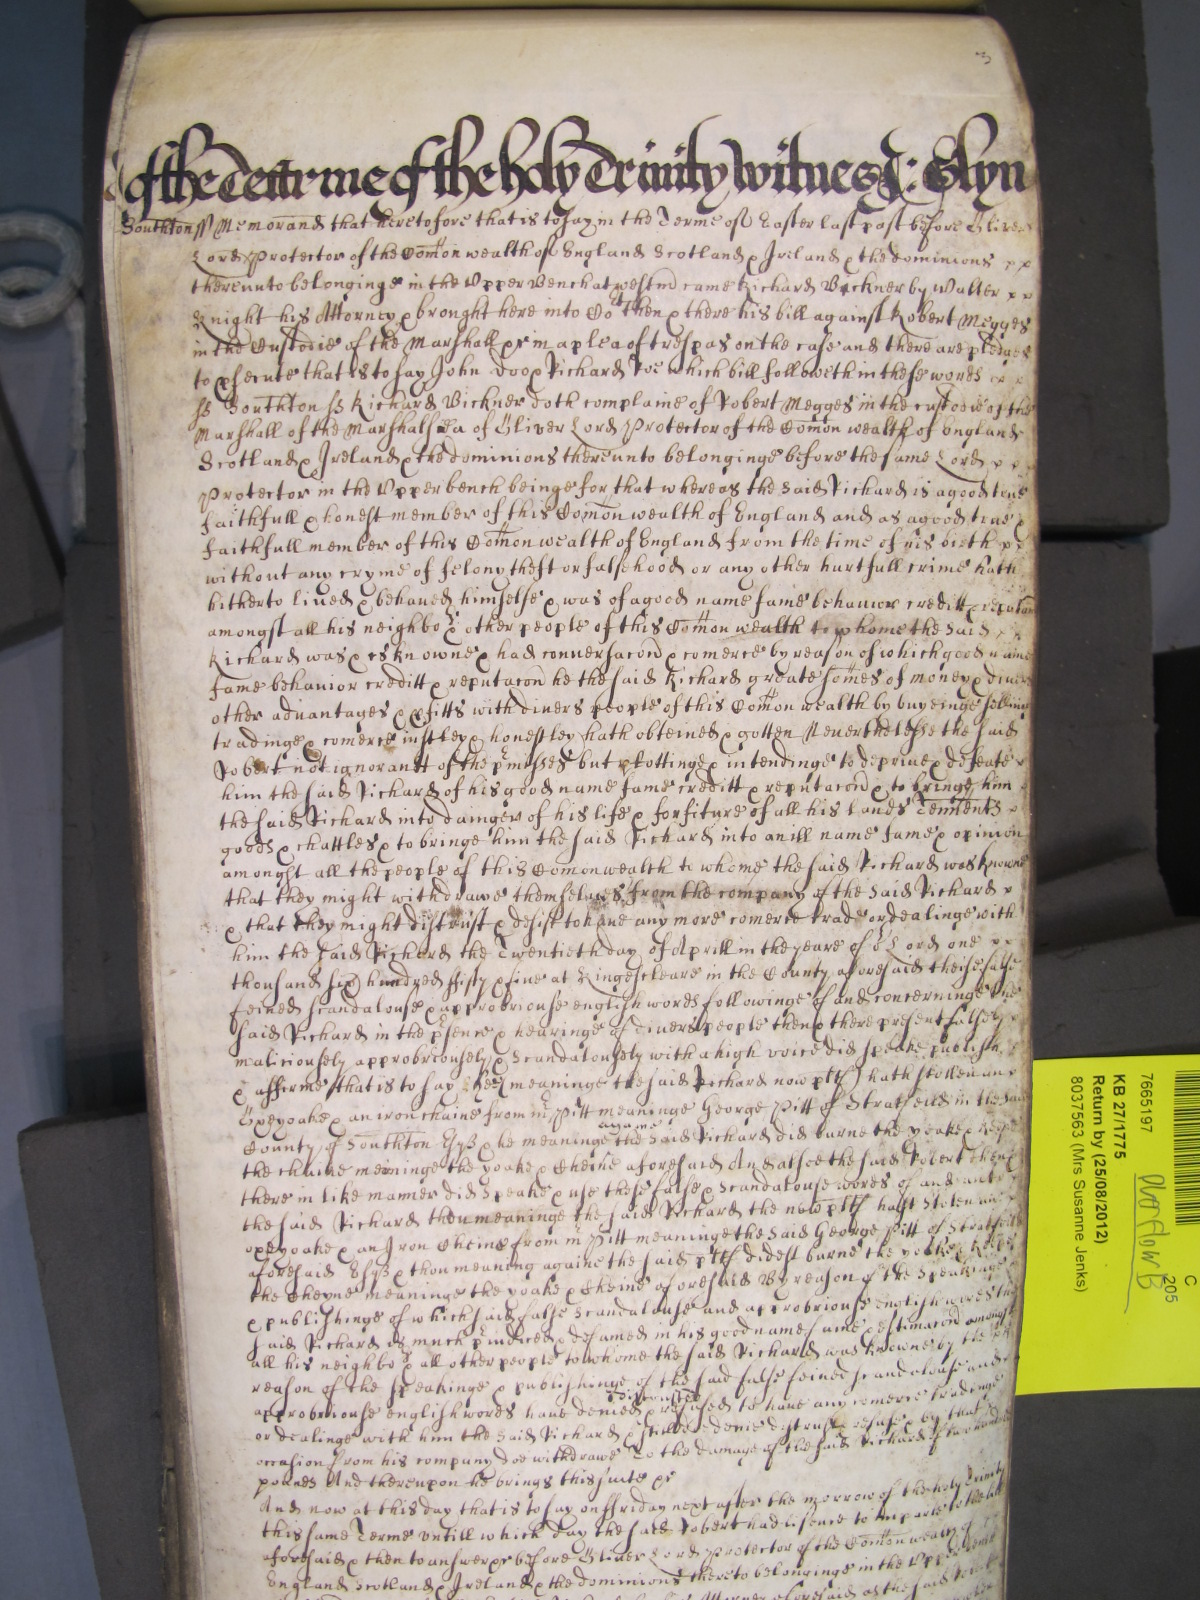 3
of the Tearme of the holy Trinity Witnes J: Glyn
Southton ss Memorand that heretofore that is to say in the Terme of Easter last past before Oliver
Lord Protector of the Comon wealth of England Scotland & Ireland & the dominions
thereunto belonginge in the Upper Bench at Westm came Richard Bickner by Walter
Knight his Attorney & brought here into Co then & there his bill against Robert Megges
in the Custodie of the Marshall &c in a plea of trespas on the case and there are pledges
to psecute that is to say John Doo & Richard Roe which bill followeth in these words
ss Southton ss Richard Bickner doth complaine of Robert Megges in the custodie of the
Marshall of the Marshalsea of Oliver Lord Protector of the Comon wealth of England
Scotland & Ireland & the dominions thereunto belonginge before the same Lord
Protector in the Upper bench beinge for that whereas the said Richard is a good true
faithfull & honest member of this Comon wealth of England and as a good true &
faithfull member of this Comon wealth of England from the time of his birth
without any cryme of felony theft or falsehood or any other hurtfull crime hath
hitherto lived & behaved himselfe & was of a good name fame behavior creditt & reputacon
amongst all his neighbo & other people of this Comon wealth to whome the said
Richard was & is knowne & had conversacon & comerce by reason of which good name
fame behavior creditt & reputacon he the said Richard greate somes of money & divers
other advantages & pfitts with divers people of this Comon wealth by buyeinge sellinge
tradinge & comerce justley & honestley hath obteined & gotten Neverthelesse the said
Robert not ignorant of the pmisses but plottinge & intendinge to deprive & defeate
him the said Richard of his good name fame creditt & reputacon & to bringe him
the said Richard into dainger of his life & forfiture of all his Lands Tenements
goods & chattles & to bringe him the said Richard into an ill name fame & opinion
amongst all the people of this Comonwealth to whome the said Richard was knowne
that they might withdrawe themselves from the company of the said Richard
& that they might distrust & desist to have any more comerce trade or dealinge with
him the said Richard the Twentieth day of Aprill in the yeare of o Lord one
thousand six hundred fifty & five at Kingescleare in the County aforesaid theise false
feined scandalouse & approbriouse english words followinge of and concerninge the
said Richard in the psence & hearinge of divers people then & there present falsely
maliciousely approbriousely & scandalousely with a high voice did speake publish
& affirme that is to say he meaninge the said Richard now plt hath stollen an
Oxe yoake & an iron chaine from m Pitt meaninge George Pitt of Stratfeild in the said
againe
County of Southton Esq & he meaninge the said Richard did burne the yoake & keepe
the chaine meaninge the yoake & Cheine aforesaid And alsoe the said Robert then &
there in like manner did speake & use these false & scandalouse words of and
the said Richard thou meaninge the said Richard the now plt hast stolen an
oxe yoake & an Iron Cheine from m Pitt meaninge the said George Pitt of Stratfeild
aforesaid Esq & thou meaning againe the said plt didest burne the yoake & keepe
the Cheyne meaninge the yoake & Cheine aforesaid By reason of the Speakinge
& publishinge of which said false scandalouse and approbriouse english words the
said Richard is much piudiced & defamed in his good name fame & estimacon amongst
all his neighbo & all other people to whome the said Richard was knowne by the
reason of the speakinge & publishinge of the said false feined scandalouse and
distrusted
approbriouse english words have denied & refused to have any comerce tradinge
or dealinge with him the said Richard & still doe denie distrust refuse & by that
occasion from his company doe withdrawe To the damage of the said Richard of two hundred
pounds And thereupon he brings this suite &c
And now at this day that is to say on ffriday next after the morrow of the holy Trinity
this same Terme untill which day the said Robert had lisence to imparle to the bill
aforesaid & then to answer &c before Oliver Lord Protector of the Comon wealth of
England Scotland & Ireland & the dominions thereto belonginge in the Upper bench
7665197
KB 27/1775
Return by (25/08/2012)
8037563 (Mrs Susanne Jenks)
C
205